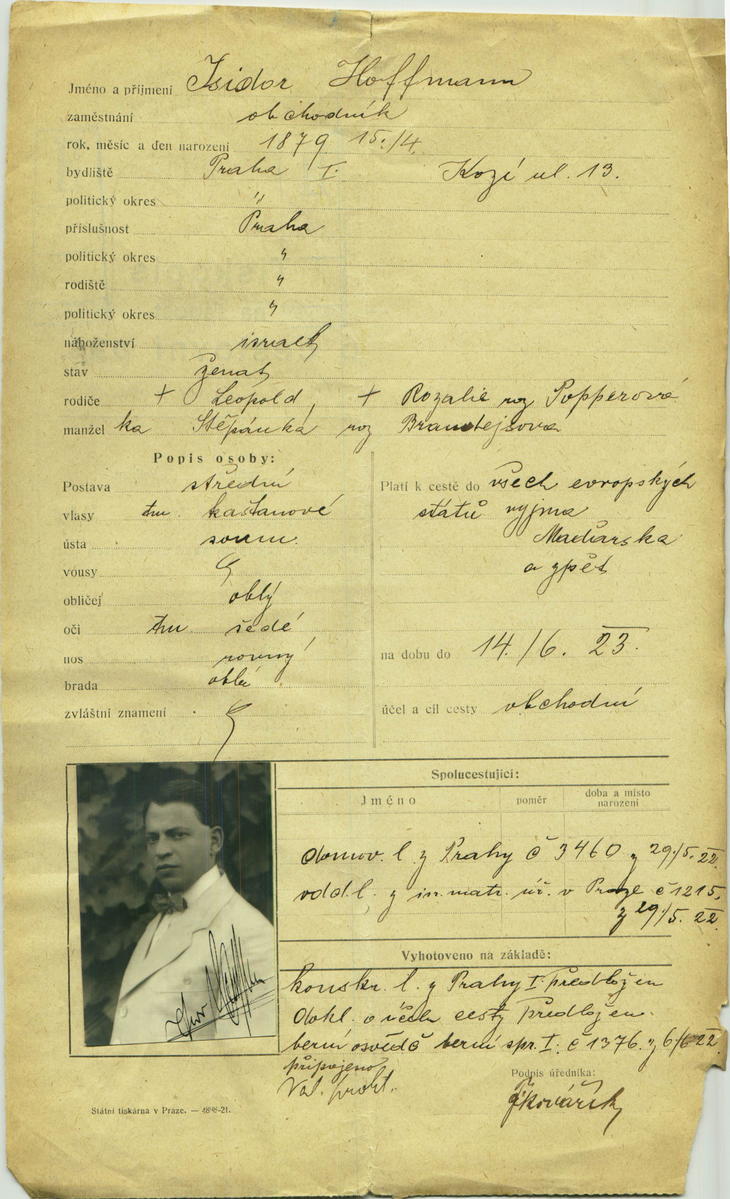 Jméno a příjmení Isidor Hoffmann
zaměstnání obchodník
rok, měsíc a den narození 1879 15./4.
bydliště Praha I. Kozí ul. 13.
politický okres "
příslušnost Praha
politický okres "
rodiště "
politický okres "
náboženství israel
stav ženat
rodiče + Leopold, + Rozalie roz Popperová
manžel ka Štěpánka roz Brandejsova
Popis osoby:
Postava střední
vlasy tm. kaštanové
ústa soum.
vousy
obličej oblý
oči tm. šedé
nos rovný
brada oblá
zvláštní znamení
Platí k cestě do všech evropských
států vyjma
Maďarska
a zpět
na dobu do 14./6. 23.
účel a cíl cesty obchodní
Spolucestující:
Jméno poměr doba a místo narození
domov. l. z Prahy č 3460 z 29./5. 22.
odd. l. z isr. matr. úř. v Praze č 1215.
z 29/5. 22
Vyhotoveno na základě:
konskr. l. z Prahy I. předložen
dokl. o účelu cesty předložen.
berní osvědč berní spr. I. č 1376. z 6/6 22
připojeno
Podpis úředníka:
Kovářík
Státní tiskárna v Praze. — 4898-21.